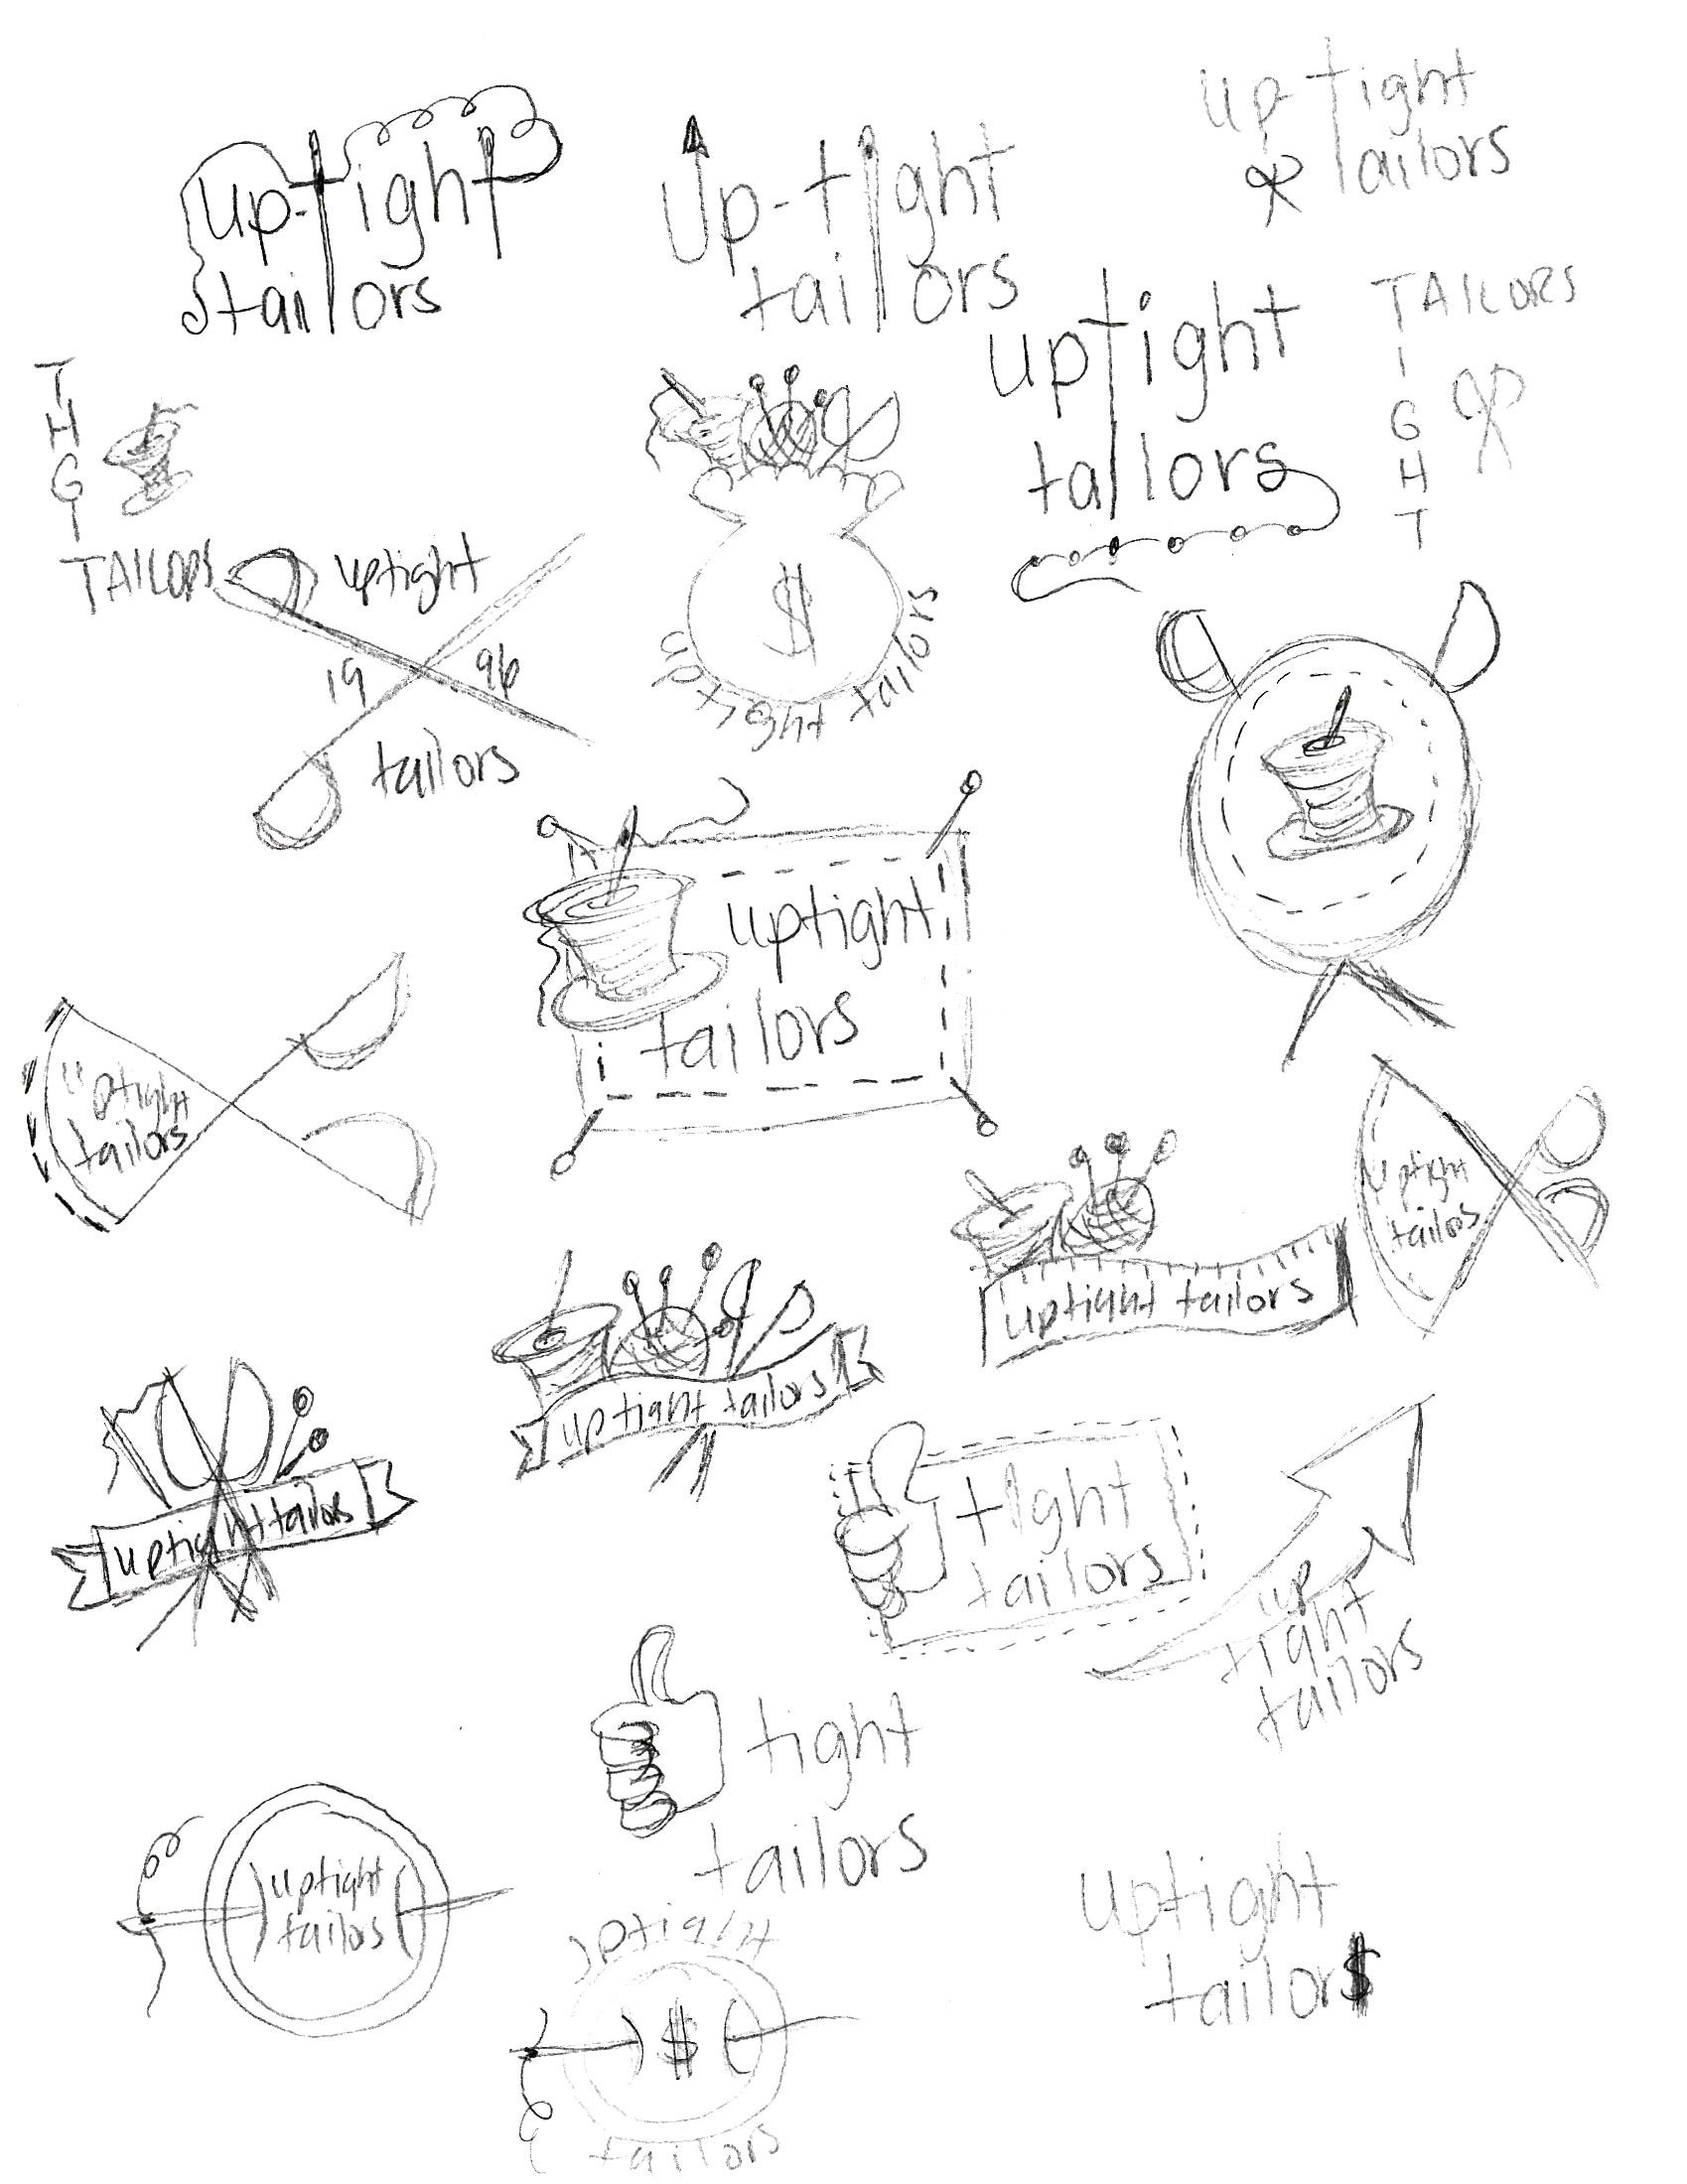 up-tight
tailors
up-tight
tailors
up-tight
tailors
uptight
tailors
TAILORS
I
G
H
T
T
H
G
I
TAILORS
uptight
19 96
tailors
$
uptight tailors
uptight
tailors
uptight
tailors
uptight
tailos
uptight tailors
uptight tailors
uptight tailors
tight
tailors
up
tight
tailors
tight
tailors
uptight
tailors
uptight
$
tailors
uptight
tailor$